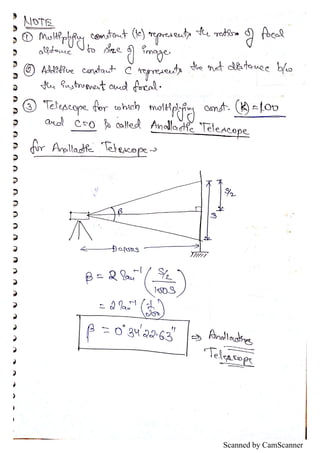 NOTE
① Multiplying constant (k) represents the ratio of focal
distance to size of image.
② Additive constant C represents the net distance b/w
the instrument and focal.
③ Telescope for which multiplying const. (K)=100
and C=0 is called Anallactic Telescope
for Anallactic Telescope →
S/2
β
S
D=100S
β = 2 tan⁻¹ (S/2 / 100S)
= 2 tan⁻¹ (1/200)
β = 0° 34' 22.63" ⇒ Anallactic
Telescope
Scanned by CamScanner